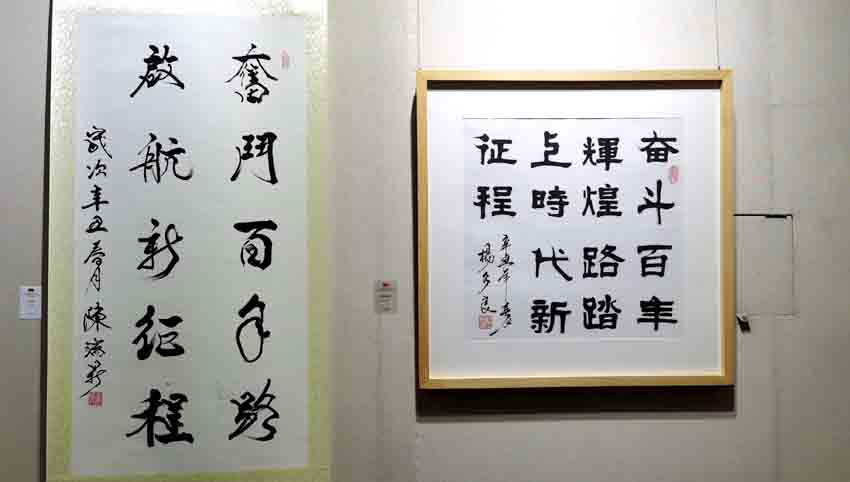 奮鬥百年路
啟航新征程
歲次辛丑春月 陳
奋斗百年
輝煌路踏
上時代新
征程
辛丑年夏
楊多良